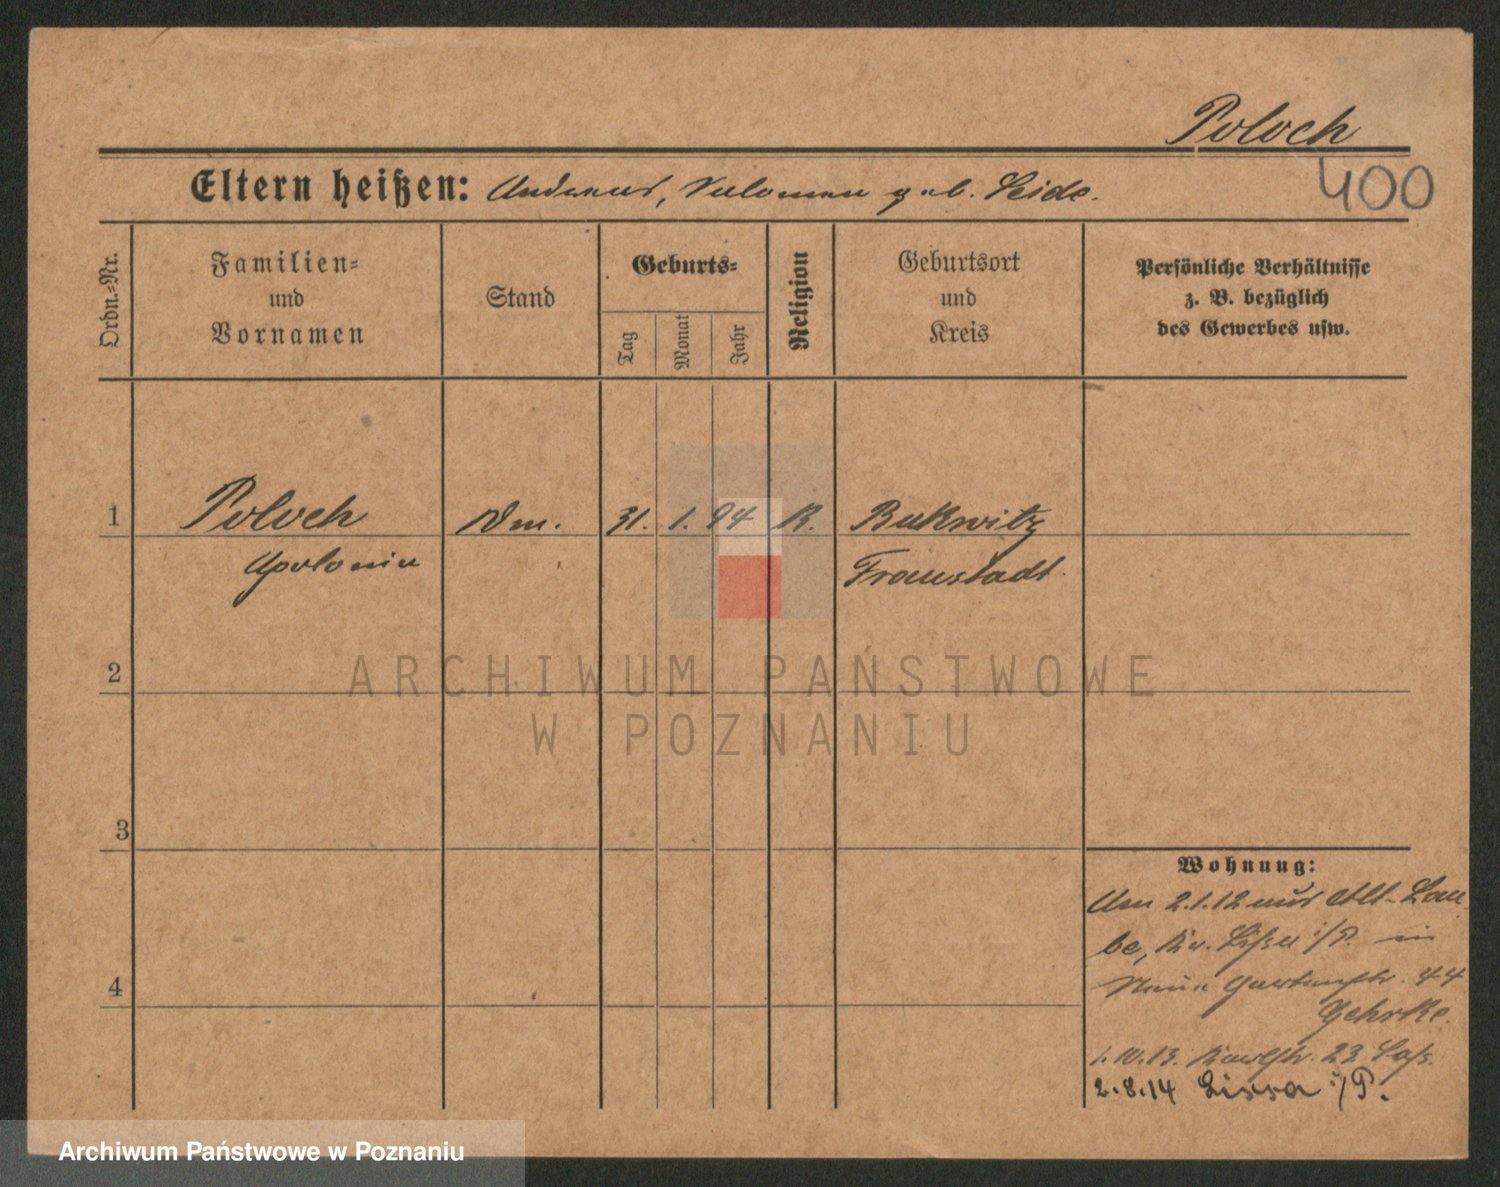 Poloch
400
Eltern heißen: Andreas, Salomea geb. Heide.
Ordn.=Nr.
Familien=
und
Vornamen
Stand
Geburts=
Tag
Monat
Jahr
Religion
Geburtsort
und
Kreis
Persönliche Verhältnisse
z. B. bezüglich
des Gewerbes usw.
1 Poloch Dm. 31. 1. 94 K. Bukwitz
Apolonia Fraustadt.
2
3
4
Wohnung:
Am 2.1.12 aus Alt-Lau-
be, Kr. Lissa i/P. in
Neue Gartenstr. 44
Gehrke.
1.10.13. 23
2.8.14 Lissa i/P.
ARCHIWUM PAŃSTWOWE
W POZNANIU
Archiwum Państwowe w Poznaniu